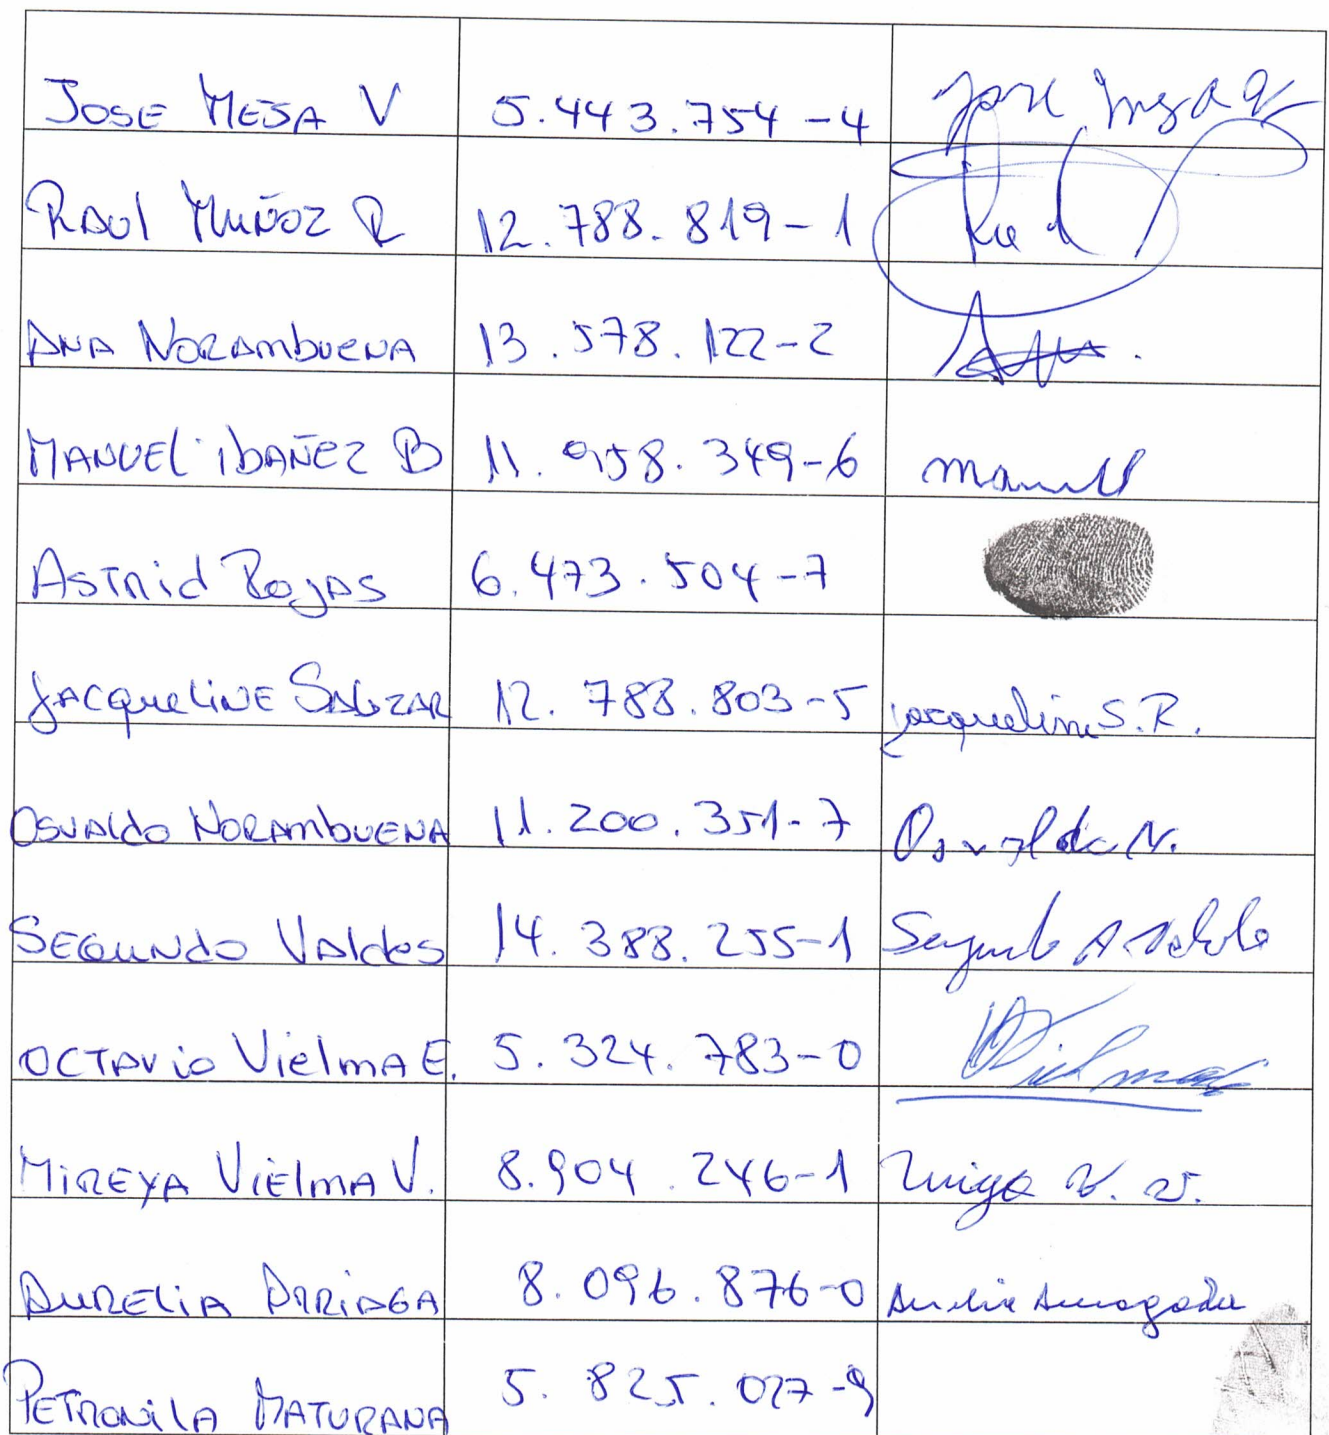 JOSE MEJA V 5.443.754-4 Jose
RAUL MUÑOZ R 12.788.819-1 Raul
ANA NORAMBUENA 13.578.122-2
MANUEL IBAÑEZ B 11.958.349-6 Manuel
ASTRID ROJAS 6.473.504-7
JACQUELINE SALAZAR 12.788.803-5 Jacqueline S.R.
OSVALDO NORAMBUENA 11.200.351-7 Osvaldo N.
SEGUNDO VALDES 14.388.255-1 Segundo A
OCTAVIO VIELMA E. 5.324.783-0 Vielma
MIREYA VIELMA V. 8.904.246-1 V. V.
AURELIA ARRIAGA 8.096.876-0 Aurelia
PETRONILA MATURANA 5.825.027-9